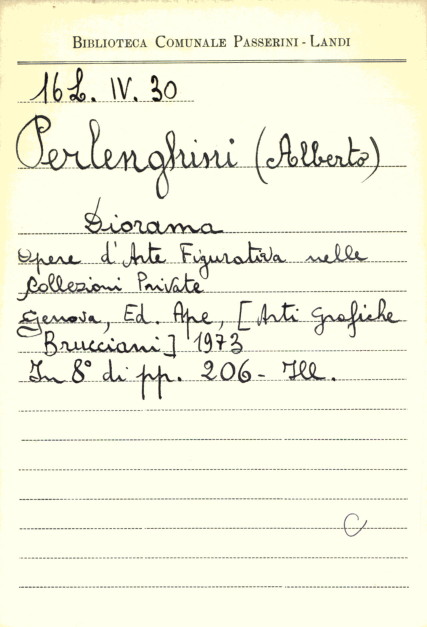 BIBLIOTECA COMUNALE PASSERINI - LANDI
16 L. IV. 30
Perlenghini (Alberto)
Diorama
Opere d'Arte Figurativa nelle
Collezioni Private
Genova, Ed. Ape, [Arti Grafiche
Brucciani] 1973
In 8° di pp. 206 - Ill.
C